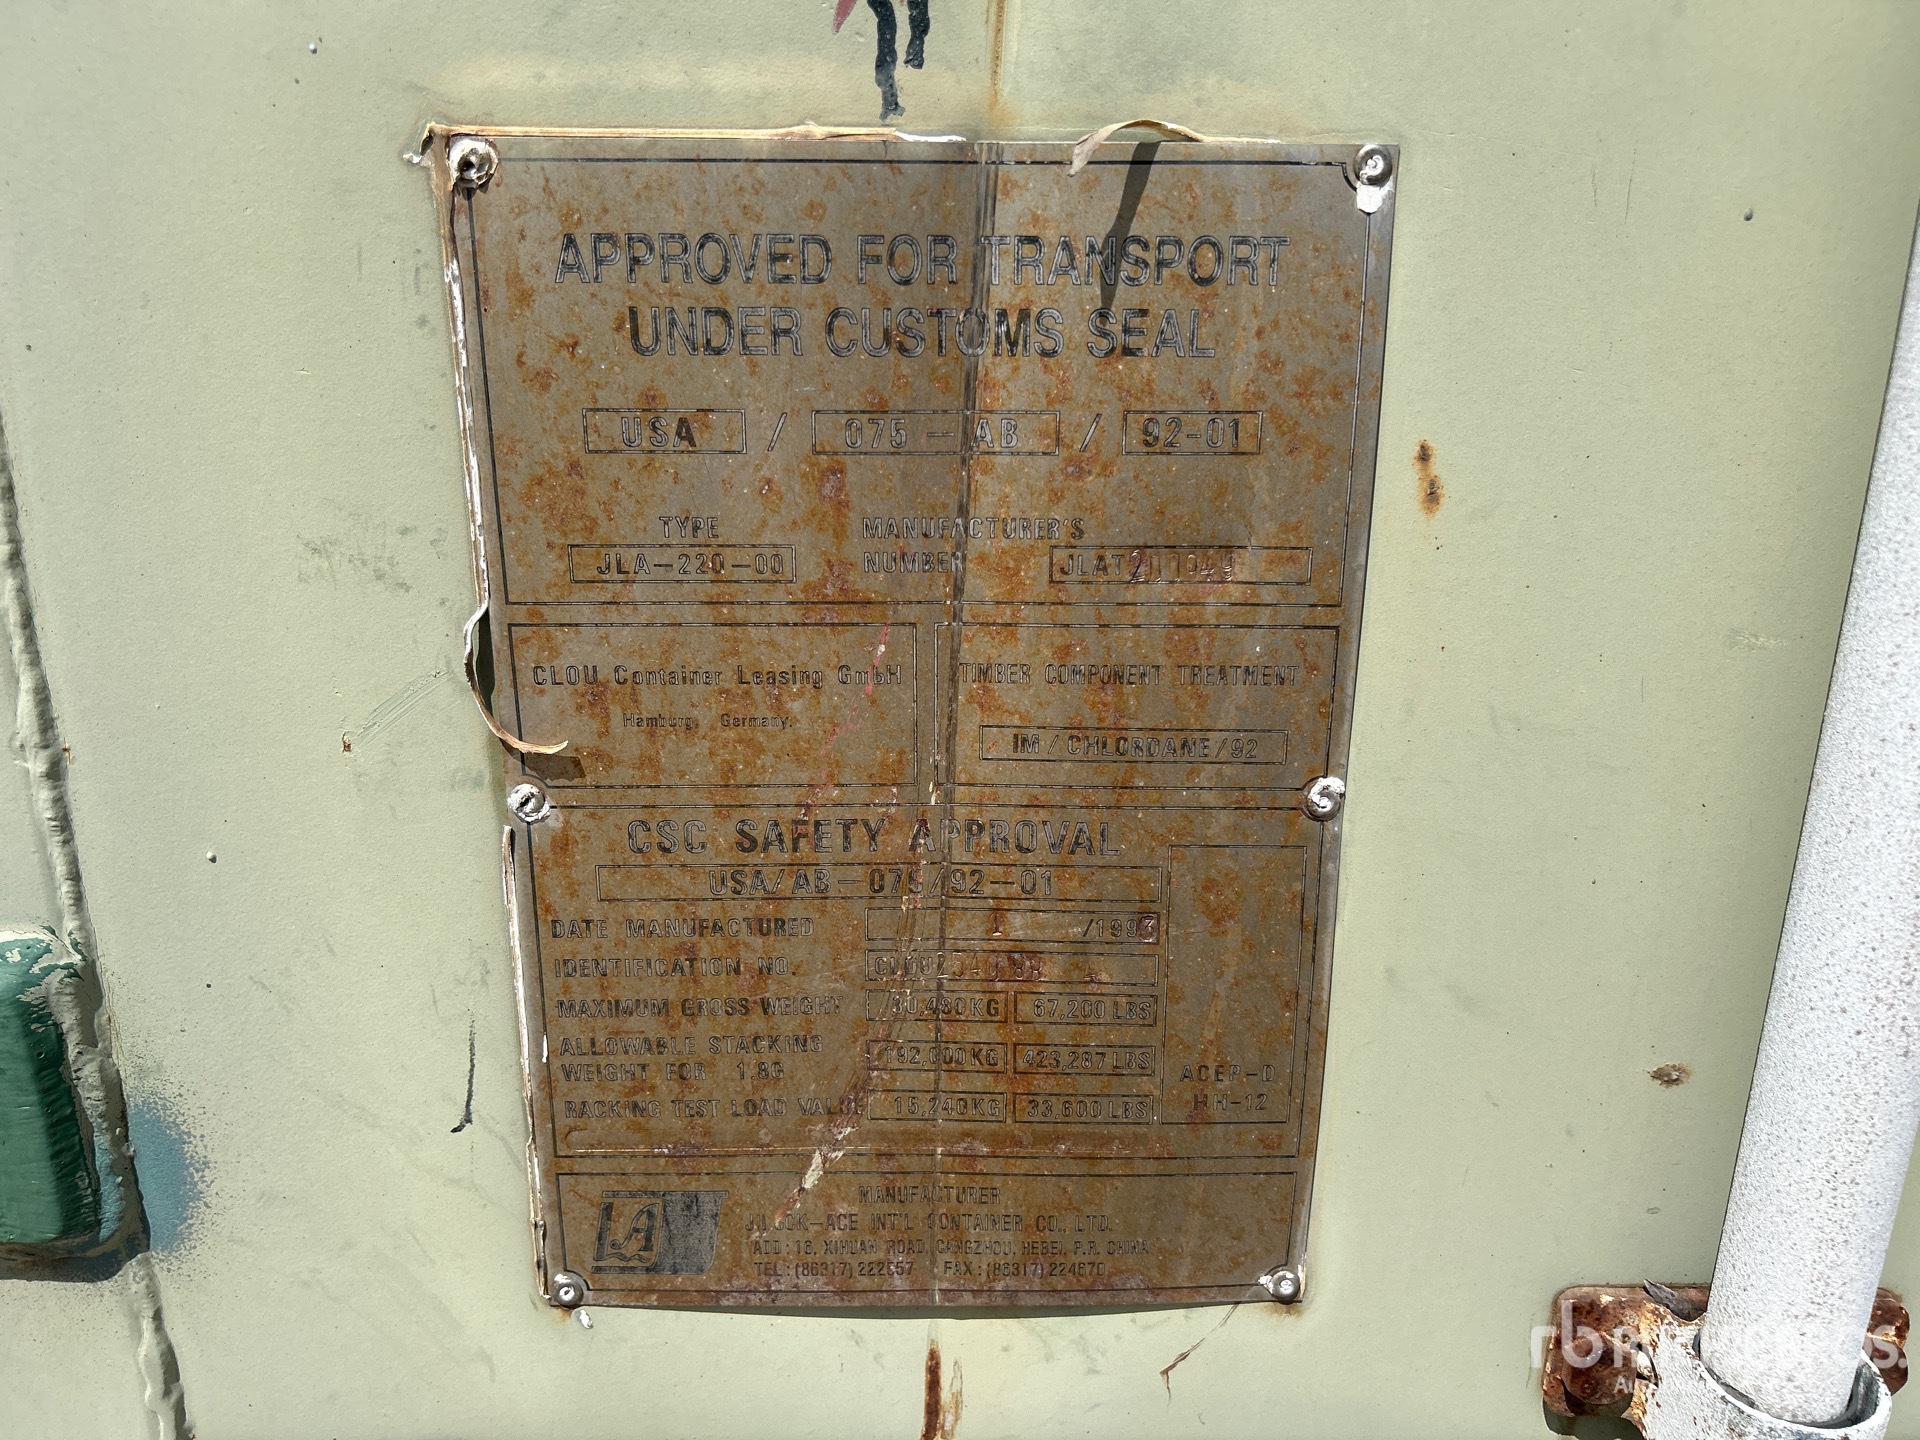 APPROVED FOR TRANSPORT
UNDER CUSTOMS SEAL
USA / 075-AB / 92-01
TYPE MANUFACTURER'S
JLA-220-00 NUMBER
CLOU Container Leasing GmbH
Hamburg, Germany.
TIMBER COMPONENT TREATMENT
IM/CHLORDANE/92
CSC SAFETY APPROVAL
USA/AB-075/92-01
DATE MANUFACTURED 1 /1993
IDENTIFICATION NO.
MAXIMUM GROSS WEIGHT 30,480KG 67,200 LBS
ALLOWABLE STACKING
WEIGHT FOR 1.8G 192,000KG 423,287 LBS
RACKING TEST LOAD VALUE 15,240KG 33,600LBS
ACEP-D
HH-12
MANUFACTURER
JILOOK-ACE INT'L CONTAINER CO., LTD.
ADD: 16, XIHUAN ROAD, CANGZHOU, HEBEI, P.R. CHINA
TEL: FAX: (86317) 224670